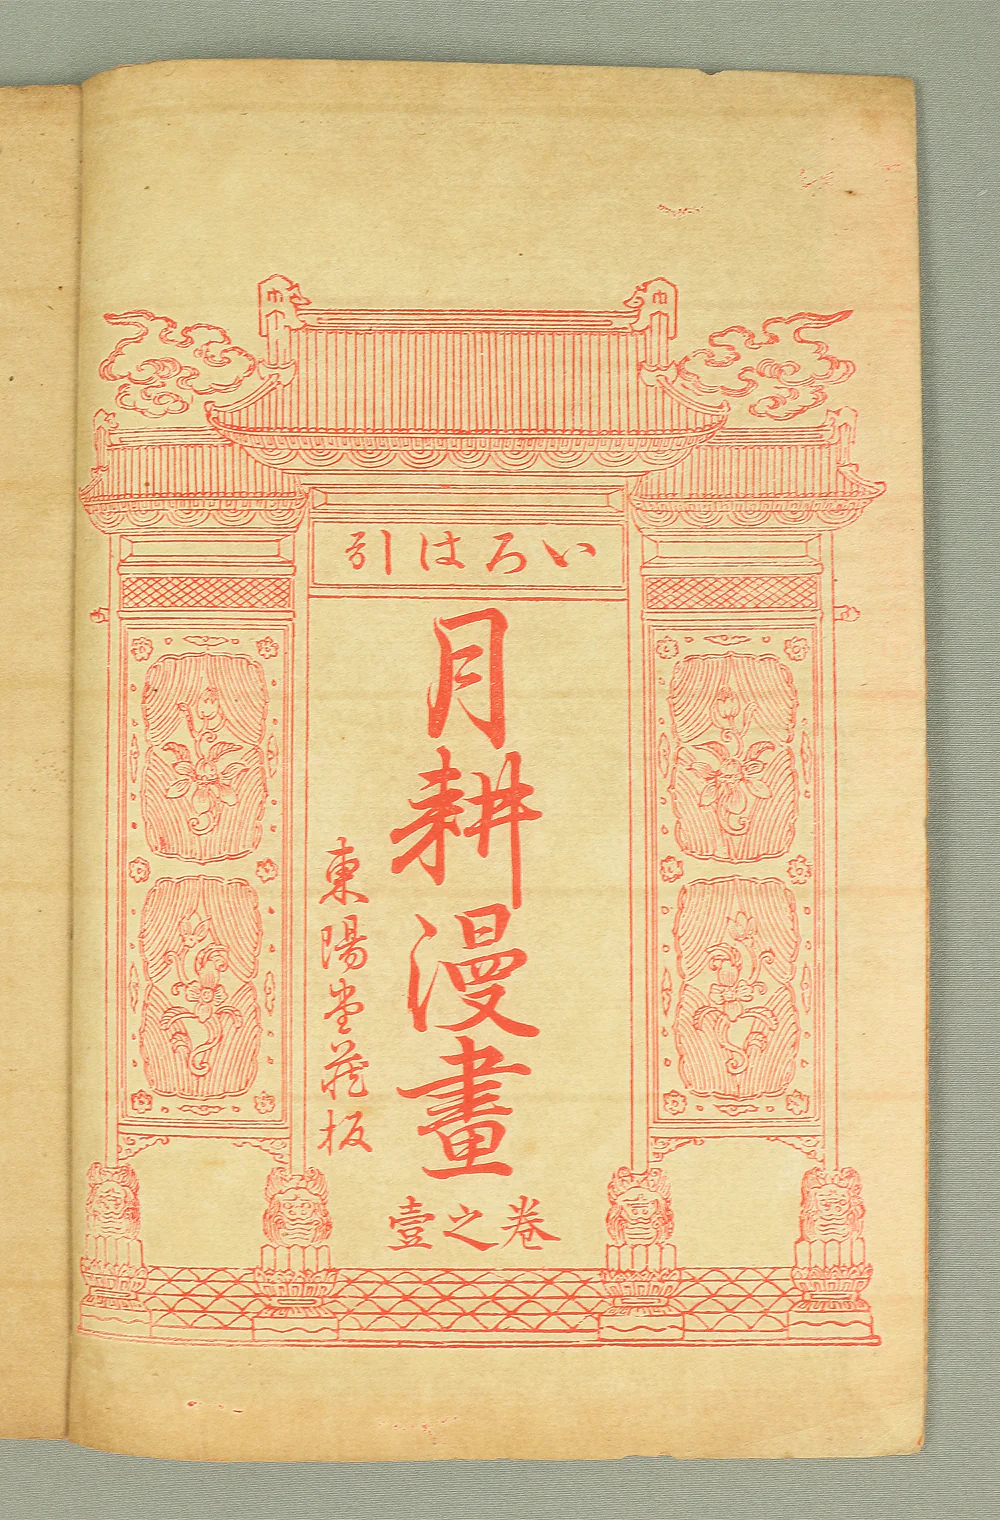 いろは引
月耕漫畫
卷之壹
東陽堂藏板